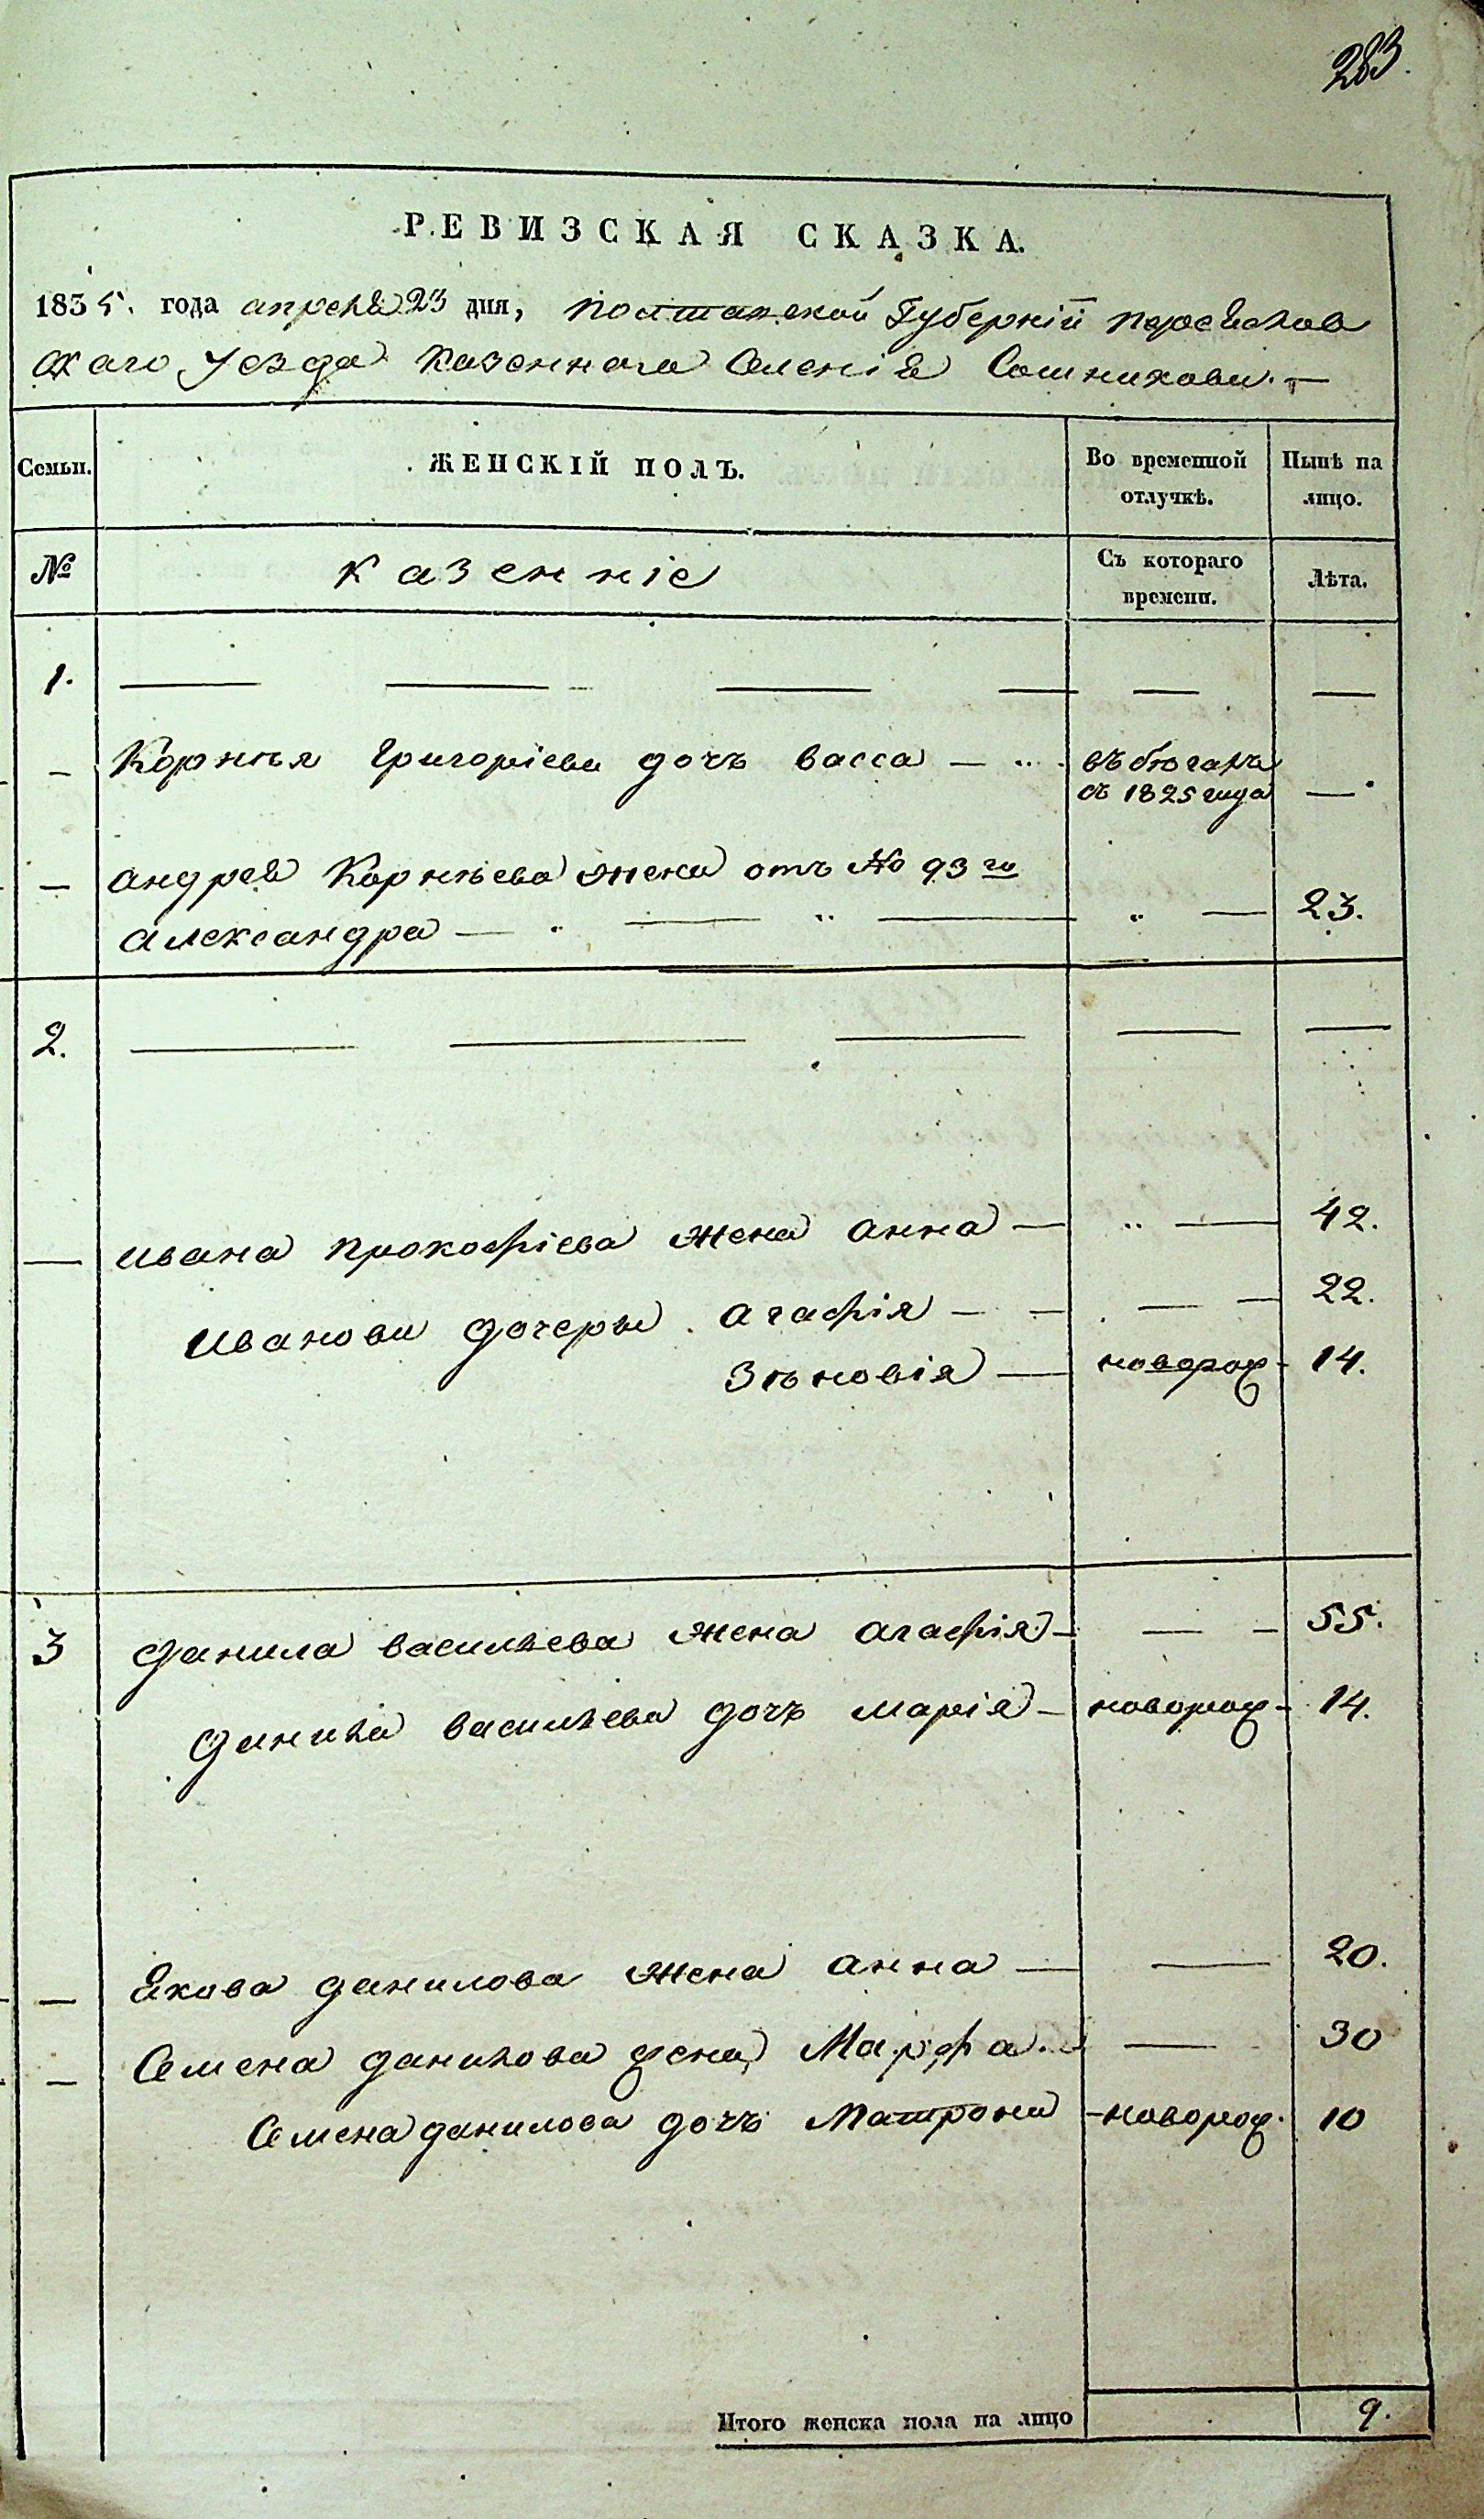 283.
РЕВИЗСКАЯ СКАЗКА.
1835. года апреля 23 дня, Полтавской Губерніи Переяслав
скаго уезда казенного селенія Сошникови. —
Семьи. ЖЕНСКІЙ ПОЛЪ. Во временной отлучкѣ. Нынѣ на лицо.
№ казенніе Съ котораго времени. Лѣта.
1. — — — — — —
— Корнѣя Григоріеви дочъ васса — въ бѣгахъ
съ 1825 года —
— андрея Корнѣева жена отъ № 93 го
александра — — — — 23.
2. — — — — —
— ивана прокофіева жена анна — — 42.
Иванови дочеры агафія — — — 22.
Зѣновія — новорож 14.
3 данила васильева жена агафія — — 55.
данила васильева дочъ марія — новорож 14.
— Якова данилова жена анна — — 20.
— Семена данилова жена Марфа — 30
Семена данилова дочъ Матрона — новорож. 10
Итого женска пола на лицо 9.